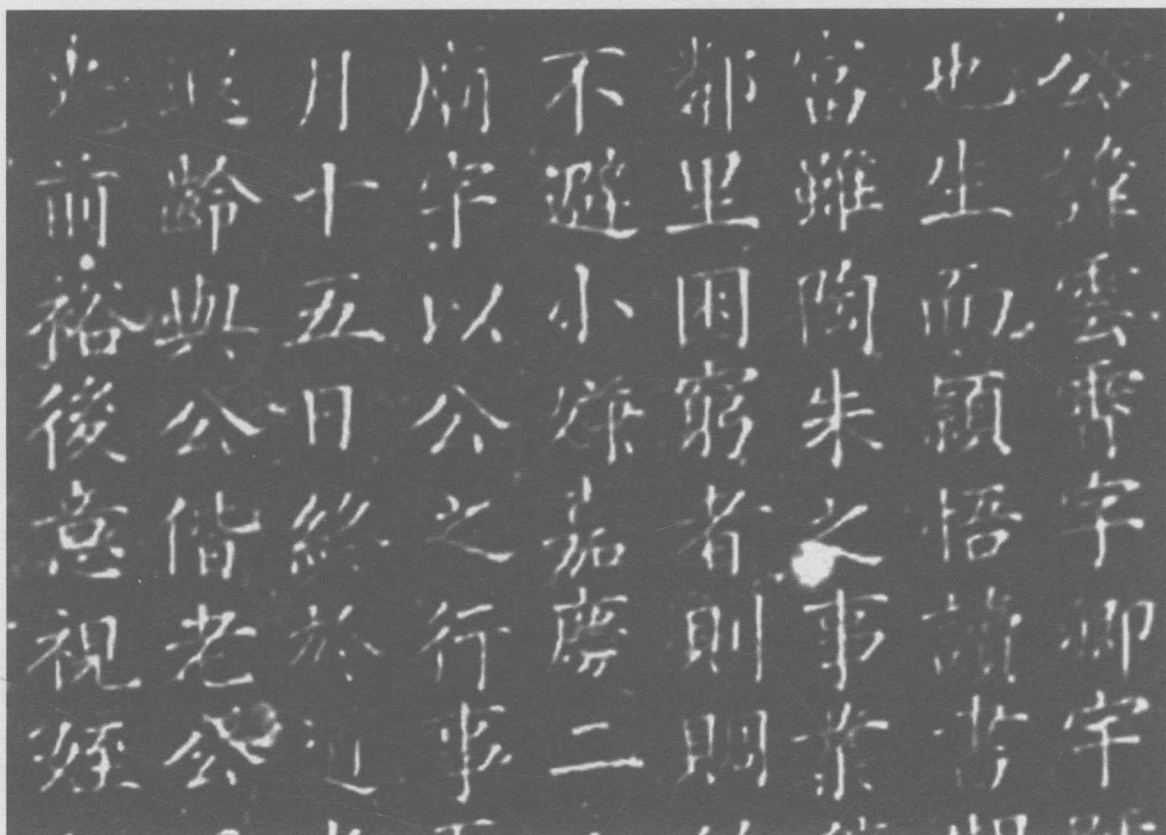 公諱雲霽字卿宇
也生而穎悟讀書
富雖陶朱之事業
鄰里困窮者則賙
不避小嫌嘉慶二
年以公之行事
月十五日終於
遐齡與公偕老公
光前裕後意視姪